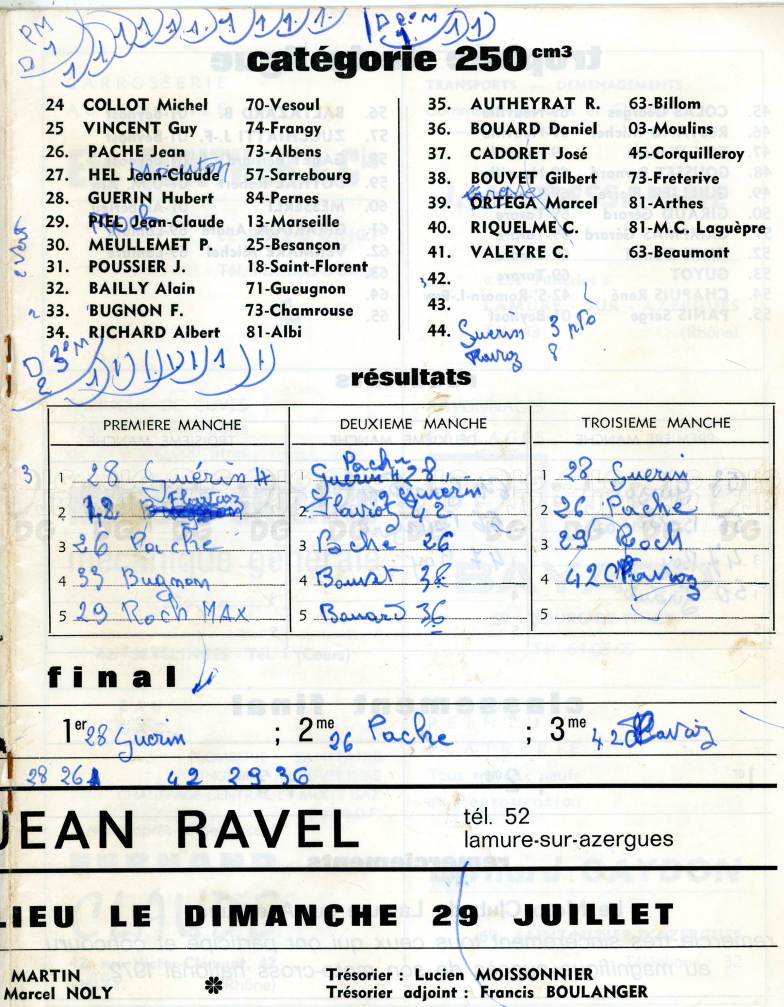 PM
D 1
1 1 1 1 1 1 1 1 1
D 2e M
1 1 1
catégorie 250 cm3
24 COLLOT Michel 70-Vesoul
25 VINCENT Guy 74-Frangy
26. PACHE Jean 73-Albens
27. HEL Jean-Claude 57-Sarrebourg
28. GUERIN Hubert 84-Pernes
29. PIEL Jean-Claude 13-Marseille
Roch
30. MEULLEMET P. 25-Besançon
31. POUSSIER J. 18-Saint-Florent
32. BAILLY Alain 71-Gueugnon
33. BUGNON F. 73-Chamrouse
34. RICHARD Albert 81-Albi
35. AUTHEYRAT R. 63-Billom
36. BONARD Daniel 03-Moulins
37. CADORET José 45-Corquilleroy
38. BOUVET Gilbert 73-Freterive
39. ORTEGA Marcel 81-Arthes
40. RIQUELME C. 81-M.C. Laguèpre
41. VALEYRE C. 63-Beaumont
42.
43.
44.
Guerin 3 pts
Flavioz 8
D 3e M
2 1 1 1 1 1 1 1
résultats
PREMIERE MANCHE
3
1 28 Guérin H
2 42 Flavioz
3 26 Pache
4 33 Bugnon
5 29 Roch MAX
DEUXIEME MANCHE
Pache
1 Guerin H 28
2 Guerin
2 Flavioz 42
3 Pache 26
4 Bouvet 38
5 Bonard 36
TROISIEME MANCHE
1 28 Guerin
2 26 Pache
3 29 Roch
4 42 Flavioz
5
final
1er 28 Guerin ; 2me 26 Pache ; 3me 42 Flavioz
28 26 42 29 36
JEAN RAVEL
tél. 52
lamure-sur-azergues
LIEU LE DIMANCHE 29 JUILLET
MARTIN
Marcel NOLY
Trésorier : Lucien MOISSONNIER
Trésorier adjoint : Francis BOULANGER